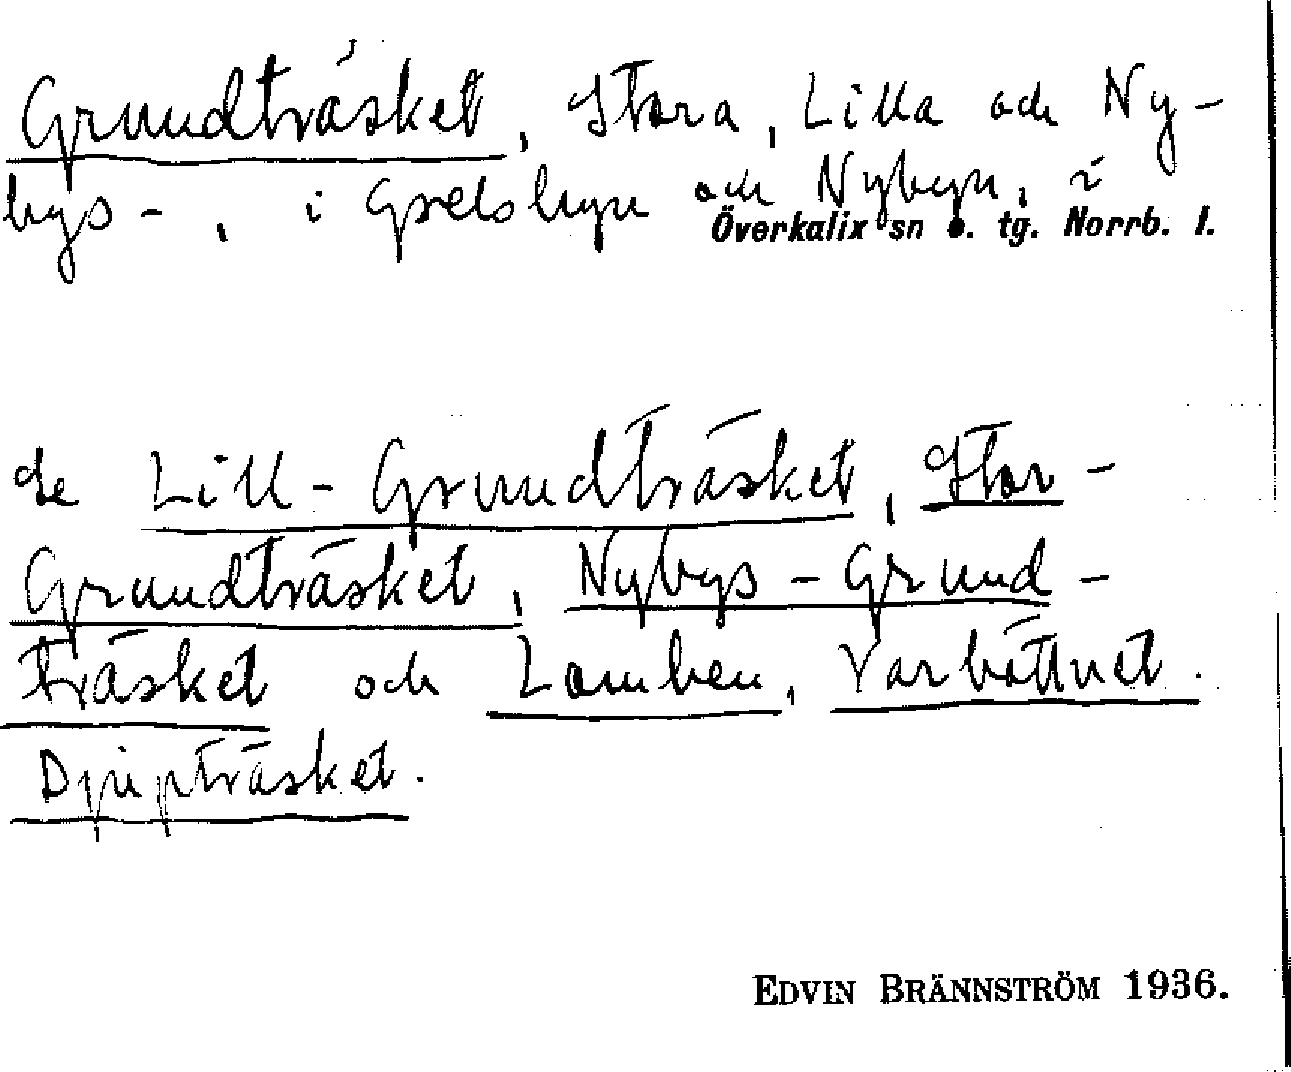 Grundträsket, Stora, Lilla och Ny-
bys-, i Grelsbyn och Nybyn, i
Överkalix sn o. tg. Norrb. l.
Se Lill-Grundträsket, Stor-
Grundträsket, Nybys-Grund-
träsket och Lomben, Varbättnet.
Djupträsket.
EDVIN BRÄNNSTRÖM 1936.